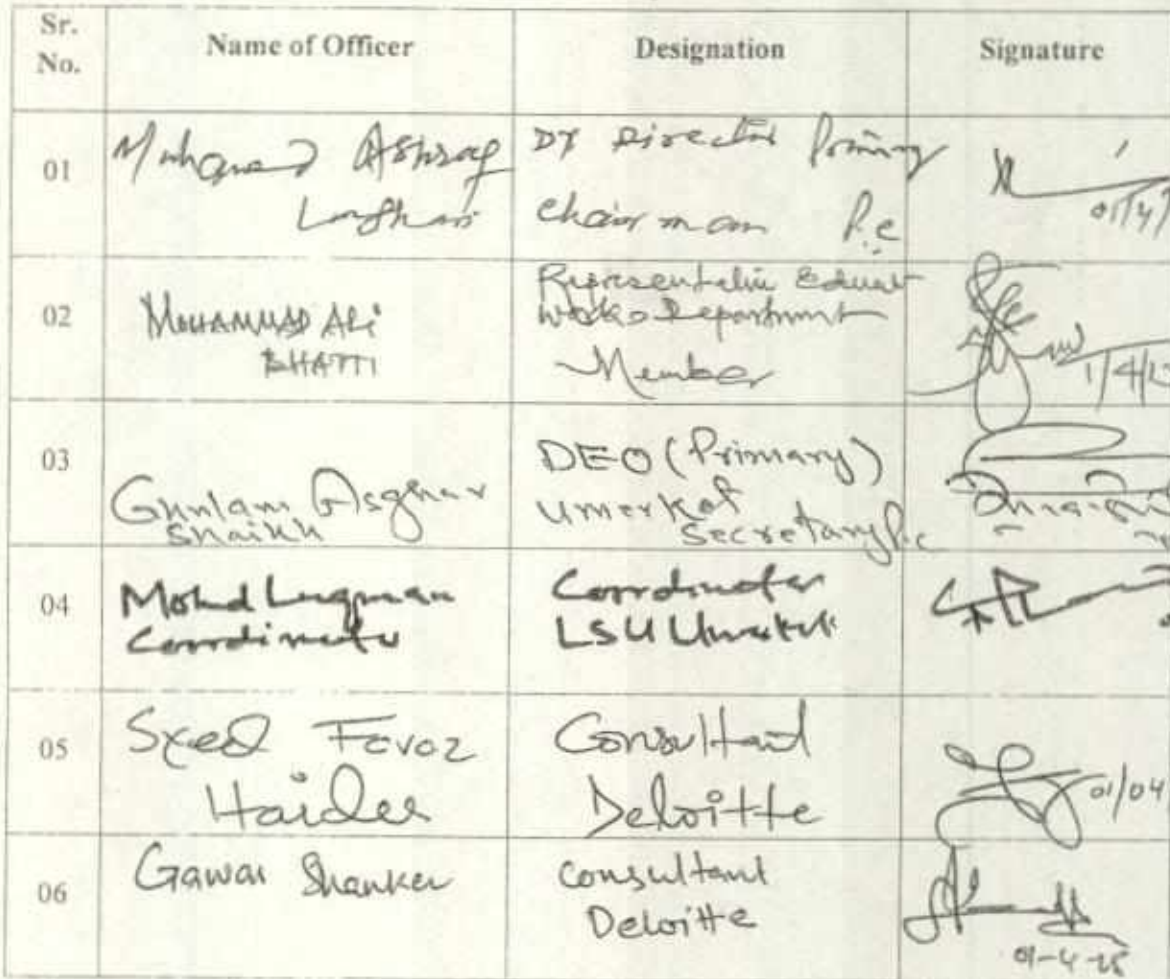 Sr. No. Name of Officer Designation Signature
01 Muhammad Ashraf DY Director Primary
Laghari Chairman P.C 01/4/
02 MOHAMMAD ALi Representative Educat
BHATTI Works Department
Member 1/4/15
03 Ghulam Asghar DEO (Primary)
Shaikh Umerkot
Secretary P.c
04 Mohd Luqman Coordinator
Coordinator LSU Umerkot
05 Syed Favoz Consultant
Haider Deloitte 01/04
06 Gawar Shanker Consultant
Deloitte
01-4-15